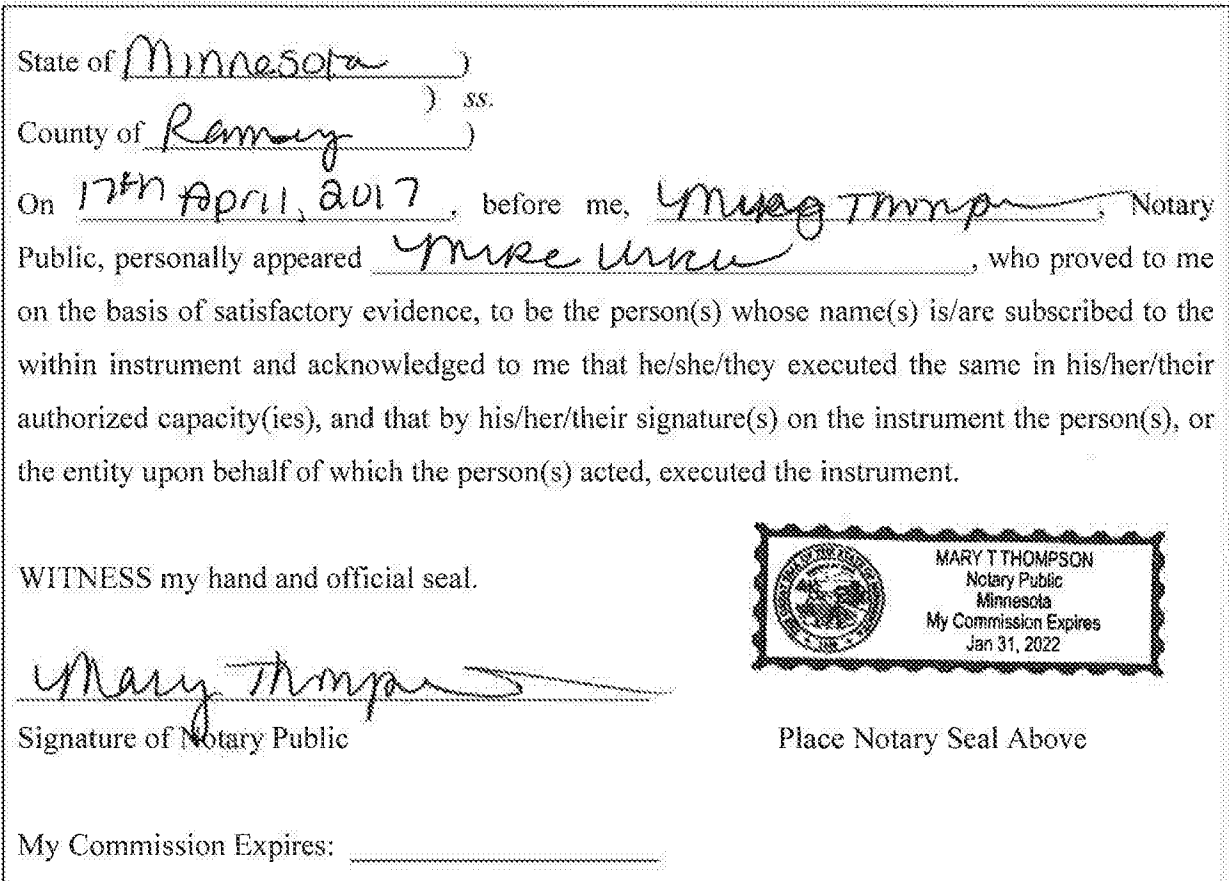 State of Minnesota )
) ss.
County of Ramsey )
On 17th April, 2017, before me, Mary Thompson, Notary
Public, personally appeared Mike, who proved to me
on the basis of satisfactory evidence, to be the person(s) whose name(s) is/are subscribed to the
within instrument and acknowledged to me that he/she/they executed the same in his/her/their
authorized capacity(ies), and that by his/her/their signature(s) on the instrument the person(s), or
the entity upon behalf of which the person(s) acted, executed the instrument.
WITNESS my hand and official seal.
MARY T THOMPSON
Notary Public
Minnesota
My Commission Expires
Jan 31, 2022
Mary Thompson
Signature of Notary Public
Place Notary Seal Above
My Commission Expires: